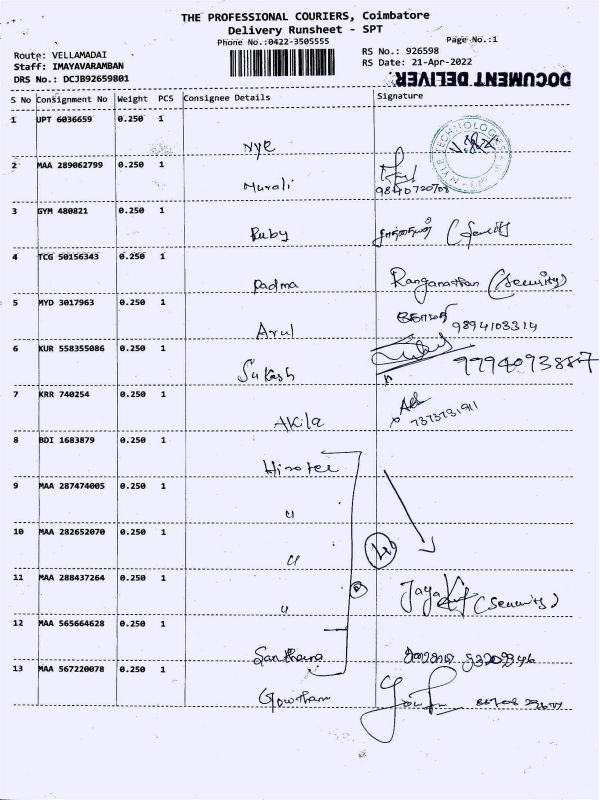 THE PROFESSIONAL COURIERS, Coimbatore
Delivery Runsheet - SPT
Phone No.:0422-3505555
Page No.:1
Route: VELLAMADAI
Staff: IMAYAVARAMBAN
DRS No.: DCJB92659801
RS No.: 926598
RS Date: 21-Apr-2022
DOCUMENT DELIVER.
S No Consignment No Weight PCS Consignee Details Signature
1 UPT 6036659 0.250 1 Nye
2 MAA 289062799 0.250 1 Murali
3 GYM 480821 0.250 1 Ruby
4 TCG 50156343 0.250 1 Padma Ranganathan (Security)
5 MYD 3017963 0.250 1 Arul 9894103314
6 KUR 558355086 0.250 1 Sukash
7 KRR 740254 0.250 1 Akila 7373731911
8 BDI 1683879 0.250 1
9 MAA 287474005 0.250 1 "
10 MAA 282652070 0.250 1 "
11 MAA 288437264 0.250 1 " Jaya (Security)
12 MAA 565664628 0.250 1 Santhana
13 MAA 567220078 0.250 1 Gowtham